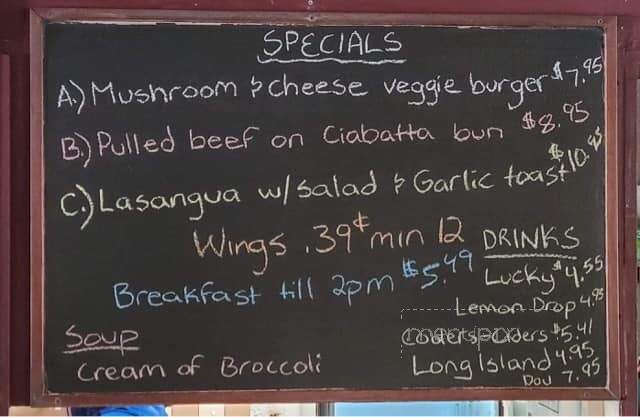 SPECIALS
A.) Mushroom & cheese veggie burger $7.95
B.) Pulled beef on Ciabatta bun $8.95
C.) Lasangua w/salad & Garlic toast $10.95
Wings .39¢ min 12
Breakfast till 2pm $5.49
Soup
Cream of Broccoli
DRINKS
Lucky $4.55
Lemon Drop 4.95
Coolers + Ciders $5.41
Long Island 4.95
Dou 7.95